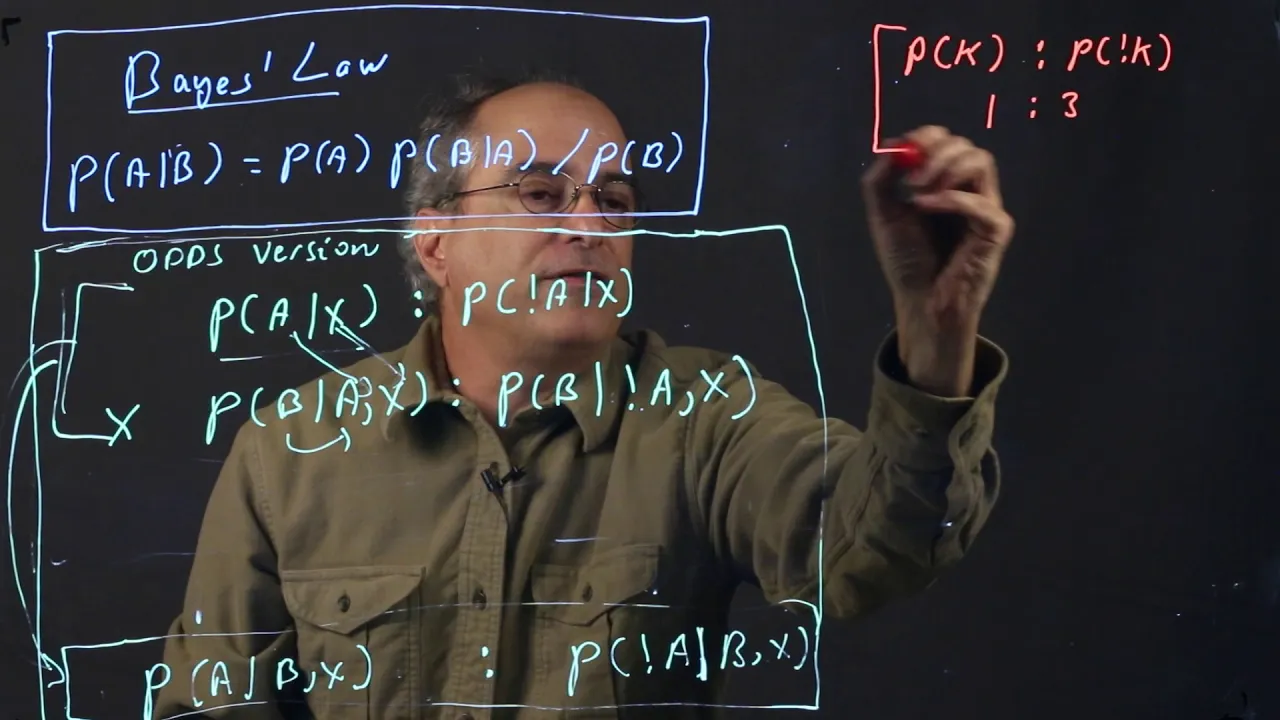 Bayes' Law
P(A|B) = P(A) P(B|A) / P(B)
ODDS version
P(A|X) : P(!A|X)
X P(B|A,X) : P(B|!A,X)
P(A|B,X) : P(!A|B,X)
P(K) : P(!K)
1 : 3